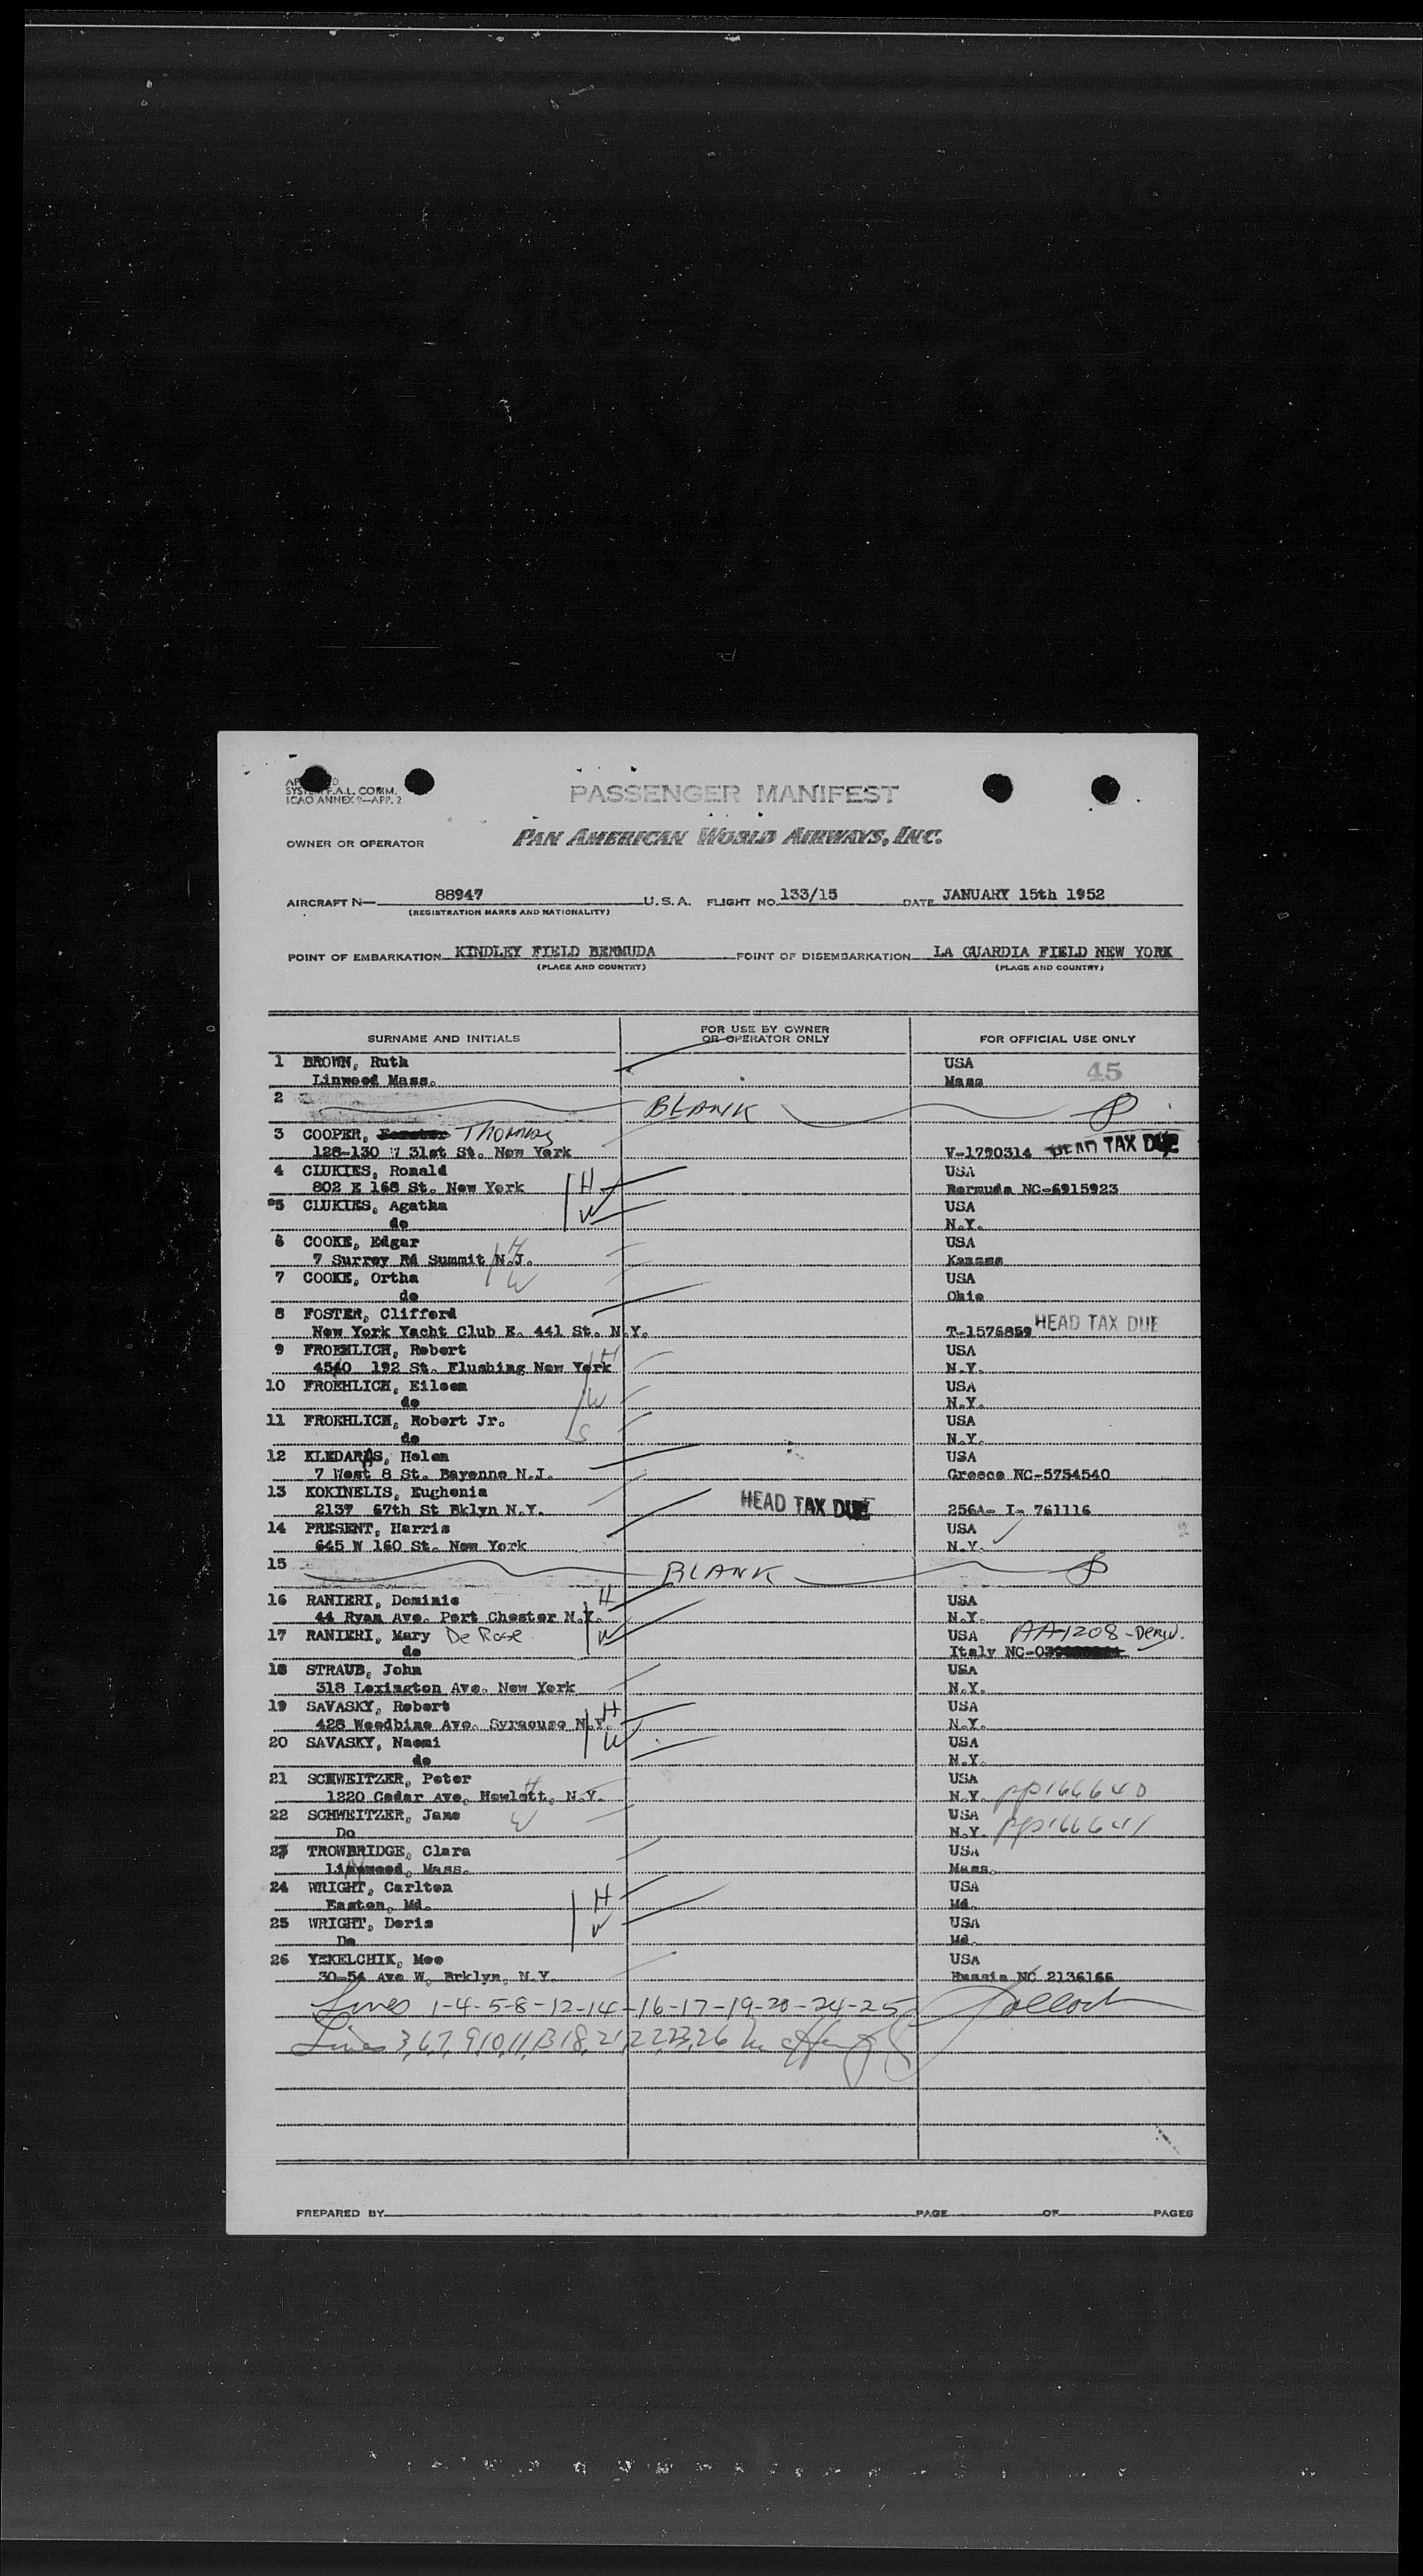 SYSTEM F.A.L. COMM.
ICAO ANNEX 9—APP. 2
PASSENGER MANIFEST
OWNER OR OPERATOR PAN AMERICAN WORLD AIRWAYS, INC.
AIRCRAFT N— 88947 U.S.A. FLIGHT NO. 133/15 DATE JANUARY 15th 1952
(REGISTRATION MARKS AND NATIONALITY)
POINT OF EMBARKATION KINDLEY FIELD BERMUDA POINT OF DISEMBARKATION LA GUARDIA FIELD NEW YORK
(PLACE AND COUNTRY) (PLACE AND COUNTRY)
SURNAME AND INITIALS FOR USE BY OWNER OR OPERATOR ONLY FOR OFFICIAL USE ONLY
1 BROWN, Ruth USA 45
Linwood Mass. Mass
2 BLANK
3 COOPER, Thomas
128-130 W 31st St. New York V-1790314 HEAD TAX DUE
4 CLUKIES, Ronald USA
802 E 168 St. New York H Bermuda NC-6915923
5 CLUKIES, Agatha W USA
do N.Y.
6 COOKE, Edgar H USA
7 Surrey Rd Summit N.J. Kansas
7 COOKE, Ortha W USA
do Ohio
8 FOSTER, Clifford
New York Yacht Club E. 441 St. N.Y. T-1576859 HEAD TAX DUE
9 FROEHLICH, Robert H USA
4540 192 St. Flushing New York N.Y.
10 FROEHLICH, Eileen W USA
do N.Y.
11 FROEHLICH, Robert Jr. USA
do S N.Y.
12 KLEDARAS, Helen USA
7 West 8 St. Bayonne N.J. Greece NC-5754540
13 KOKINELIS, Eughenia HEAD TAX DUE
2137 67th St Bklyn N.Y. 256A- I- 761116
14 PRESENT, Harris USA
645 W 160 St. New York N.Y.
15 BLANK
16 RANIERI, Dominic H USA
44 Ryan Ave. Port Chester N.Y. N.Y.
17 RANIERI, Mary De Rose W USA AA1208-Deriv.
do Italy NC-0
18 STRAUB, John USA
318 Lexington Ave. New York N.Y.
19 SAVASKY, Robert H USA
428 Woodbine Ave. Syracuse N.Y. N.Y.
20 SAVASKY, Naomi W USA
do N.Y.
21 SCHWEITZER, Peter H USA
1220 Cedar Ave, Hewlett, N.Y. N.Y. pp166640
22 SCHWEITZER, Jane W USA
Do N.Y. pp166641
23 TROWBRIDGE, Clara USA
Linwood, Mass. Mass.
24 WRIGHT, Carlton H USA
Easton, Md. Md.
25 WRIGHT, Doris W USA
Do Md.
26 YEKELCHIK, Moe USA
30-54 Ave W, Brklyn, N.Y. Russia NC 2136166
Lines 1-4-5-8-12-14-16-17-19-20-24-25 Pollock
Lines 3,6,7,9,10,11,13,18,21,22,23,26
PREPARED BY PAGE OF PAGES